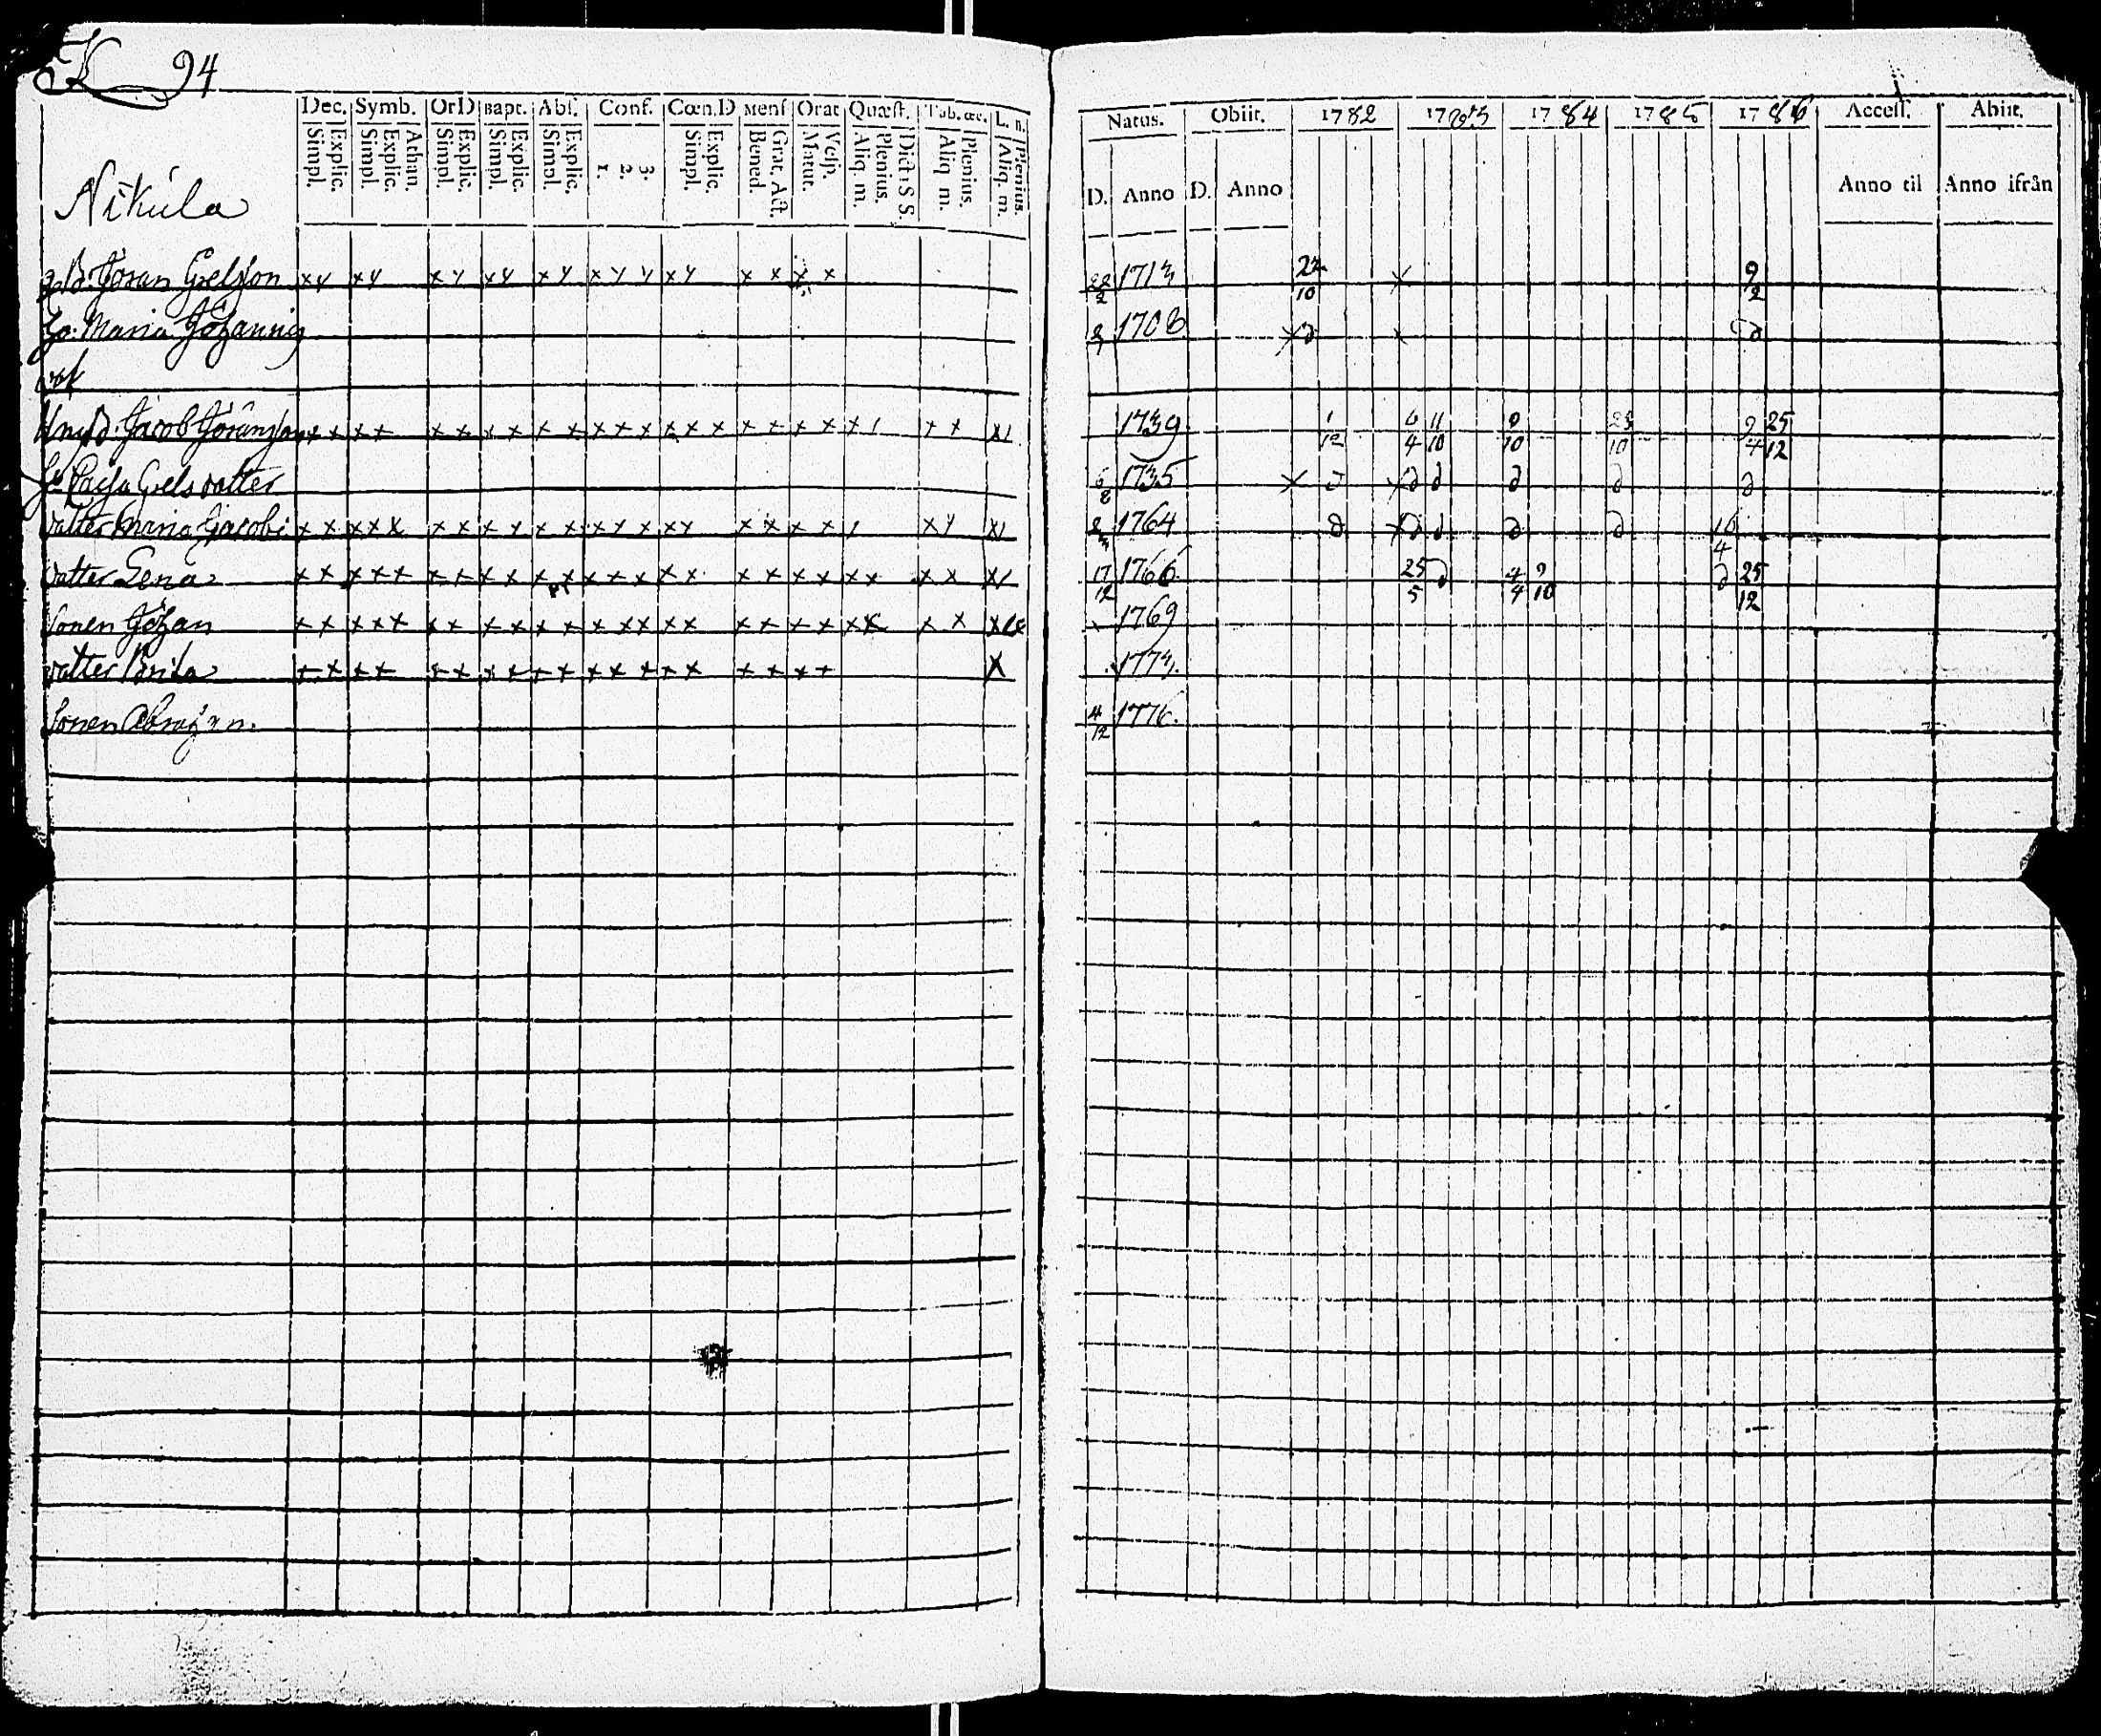 K 94
Dec. Symb. OrD Bapt. Abſ. Conf. Cœn.D Menſ Orat Quæſt. Tab. œc. L. n.
Simpl. Explic. Simpl. Explic. Athan. Simpl. Explic. Simpl. Explic. Simpl. Explic. 1. 2. 3. Simpl. Explic. Bened. Grat. Act. Matut. Veſp. Aliq. m. Plenius. Dict. S S. Aliq. m. Plenius. Aliq. m. Plenius.
Nikúla
Göran Grelsson
Maria Johannis
Jacob Göransson
Caisa Grels dotter
dotter Maria Jacobi
dotter Lena
Sonen Johan
dotter Brita
Sonen Abraham
Natus. Obiit. 1782 1783 1784 1785 1786 Acceſſ. Abiit.
D. Anno D. Anno Anno til Anno ifrån
22/2 1713 22/10 9/2
1708
1739 1/12 6/4 11/10 9/10 23/10 9/4 25/12
6/8 1735
1764 16/4
17/12 1766 25/5 4/4 9/10 25/12
1769
1773
4/12 1776.